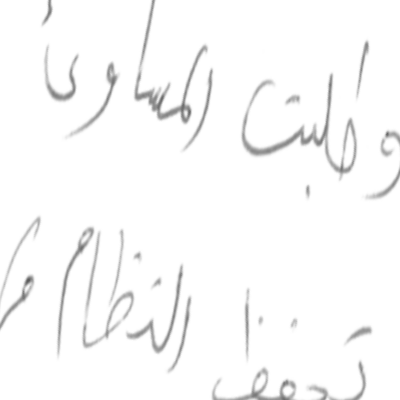 وطلبت المساوئ
تحفظ النظام